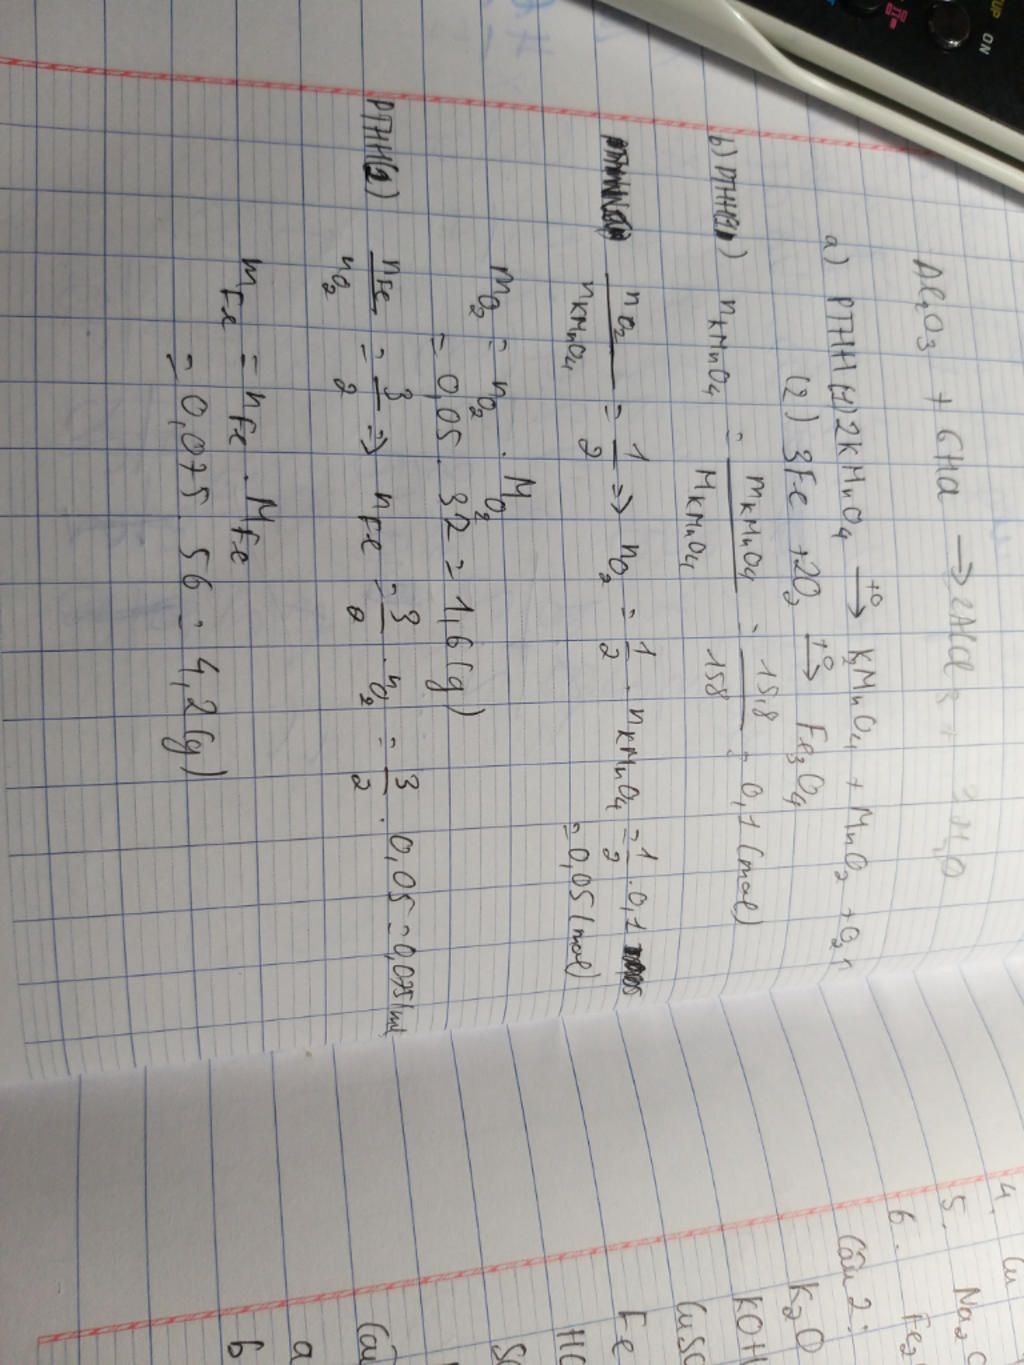 Al2O3 + 6Ha → 2Alcl3 + 3H2O
a) PTHH (1) 2KMnO4 →(t0) K2MnO4 + MnO2 + O2↑
(2) 3Fe + 2O2 →(t0) Fe3O4
b) PTHH(1) nKMnO4 = mKMnO4 / MKMnO4 = 15,8 / 158 = 0,1 (mol)
nO2 / nKMnO4 = 1/2 => nO2 = 1/2 . nKMnO4 = 1/2 . 0,1
= 0,05 (mol)
mO2 = nO2 . MO2
= 0,05 . 32 = 1,6 (g)
PTHH(2) nFe / nO2 = 3/2 => nFe = 3/2 . nO2 = 3/2 . 0,05 = 0,075 (ml
mFe = nFe . MFe
= 0,075 . 56 = 4,2 (g)
4. Cu
5. Na2
6. Fe2
Câu 2:
K2O
KOH
CuSO
Fe
HC
SO
Câu
a
b
ON